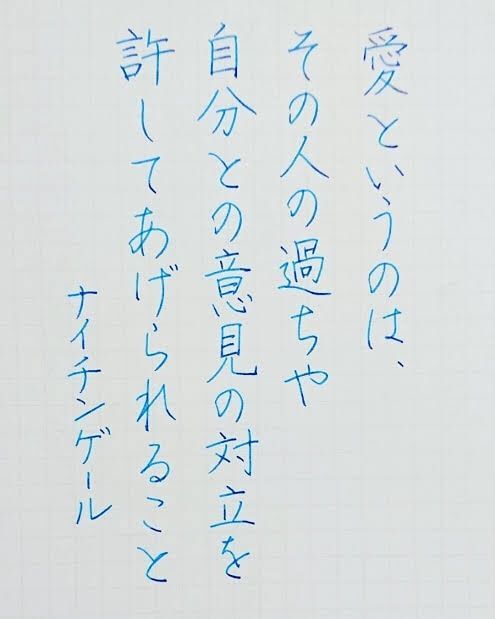 愛というのは、
その人の過ちや
自分との意見の対立を
許してあげられること
ナイチンゲール